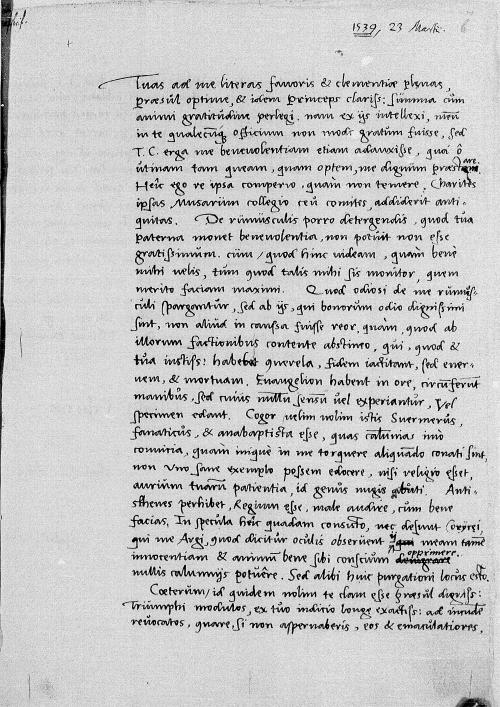 1539, 23 Martii. 6
Tuas ad me literas favoris & clementiæ plenas,
præsul optime, & idem princeps clariss: summa cum
animi gratitudine perlegi. nam ex ijs intellexi, meũ
in te qualecũq officium non modo gratum fuisse, sed
T. C. erga me benevolentiam etiam adauxisse, qua ô
utinam tam queam, quam optem, me dignum præstare.
Heic ego re ipsa comperio, quàm non temere, Charites
ipsas Musarum collegio ceu comites, addiderit anti-
quitas. De rumusculis porro detergendis, quod tua
paterna monet benevolentia, non potuit non esse
gratissimum. cum, quod hinc videam, quàm benè
mihi velis, tùm quod talis mihi sis monitor, quem
merito faciam maximi. Quod odiosi de me rumus-
culi spargantur, sed ab ijs, qui bonorum odio dignissimi
sint, non aliud in caussa fuisse reor, quàm, quod ab
illorum factionibus contente abstineo, qui, quod &
tua iustiss: habet querela, fidem iactitant, sed ener-
vem, & mortuam. Evangelion habent in ore, circũferũt
manibus, sed cuius nullũ sensũ vel experiantur, vel
specimen edant. Cogor velim nolim istis Suermerus,
fanaticus, & anabaptista esse, quas calumnias imò
convitia, quam iniquè in me torquere aliquãdo conati sint,
non uno sane exemplo possem edocere, nisi religio esset,
aurium tuarũ patientia, id genus nugis abuti. Anti-
sthenes perhibet, Regium esse, male audire, cum bene
facias. In specula heic quadam consisto, nec desunt
qui me Argi, quod dicitur oculis observent meam
innocentiam & animum bene sibi conscium opprimere
nullis calumnijs potuere. Sed alibi huic purgationi locus esto.
Cæterum, id quidem nolim te clam esse præsul digniss:
Triumphi modulos, ex tuo iudicio longe exactiss: ad incudẽ
revocatos, quare, si non aspernaberis, eos & emaculatiores,